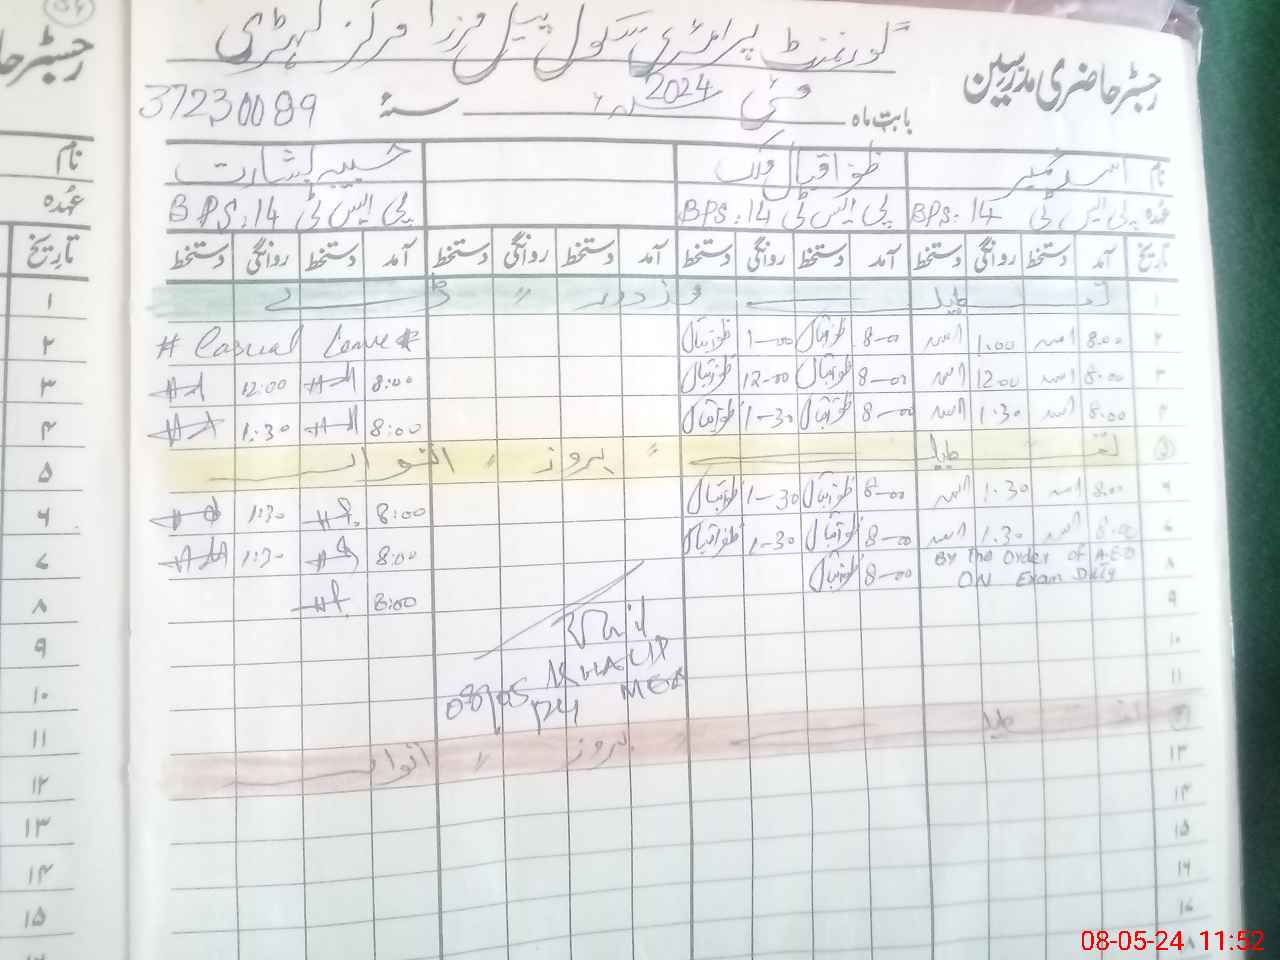 رجسٹر حاضری مدرسین
گورنمنٹ پرائمری سکول پیل مرزا مرکز لہڑی
بابت ماہ مئی 2024 سنہ 37230089
نام اسد ظفر اقبال ملک حسیب بشارت
عہدہ پی ایس ٹی BPS:14 پی ایس ٹی BPS:14 پی ایس ٹی BPS:14
تاریخ آمد دستخط روانگی دستخط آمد دستخط روانگی دستخط آمد دستخط روانگی دستخط آمد دستخط روانگی دستخط
۱ تعطیل مزدور " ڈے
۲ 8:00 اسد 1:00 اسد 8-00 ظفر اقبال 1-00 ظفر اقبال # Casual Leave #
۳ 8:00 اسد 12:00 اسد 8-00 ظفر اقبال 12-00 ظفر اقبال 8:00 12:00
۴ 8:00 اسد 1:30 اسد 8-00 ظفر اقبال 1-30 ظفر اقبال 8:00 1:30
۵ تعطیل " بروز " اتوار
۶ 8:00 اسد 1:30 اسد 8-00 ظفر اقبال 1-30 ظفر اقبال 8:00 1:30
۷ 8:00 اسد 1:30 اسد 8-00 ظفر اقبال 1-30 ظفر اقبال 8:00 1:30
۸ By The Order of AEO ON Exam Duty 8-00 ظفر اقبال 8:00
۹
۱۰
KHALID
MEA
08/05/24
۱۱
۱۲ تعطیل " بروز " اتوار
۱۳
۱۴
۱۵
۱۶
۱۷
۱۸
نام
عہدہ
تاریخ
۱
۲
۳
۴
۵
۶
۷
۸
۹
۱۰
۱۱
۱۲
۱۳
۱۴
۱۵
08-05-24 11:52